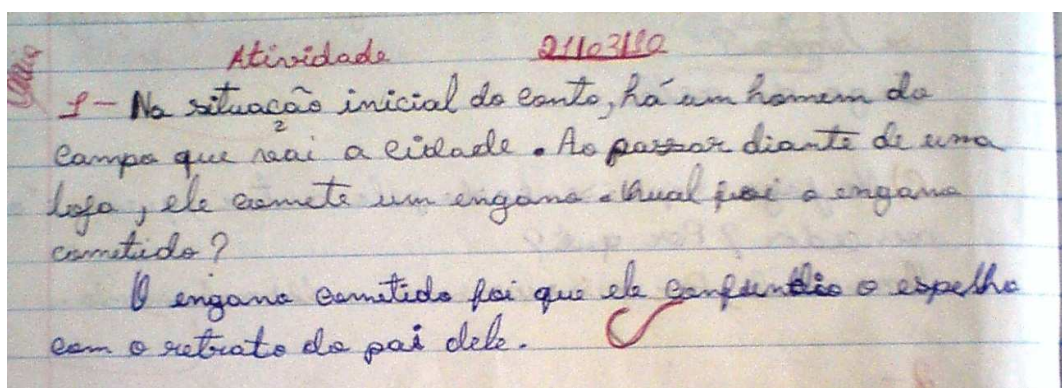 Atividade 21/03/10
1- Na situação inicial do conto, há um homem do
campo que vai a cidade. Ao passar diante de uma
loja, ele comete um engano. Qual foi o engano
cometido?
O engano cometido foi que ele confundio o espelho
com o retrato do pai dele.